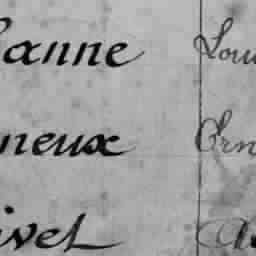 anne Lou
neux Ern
ivet A